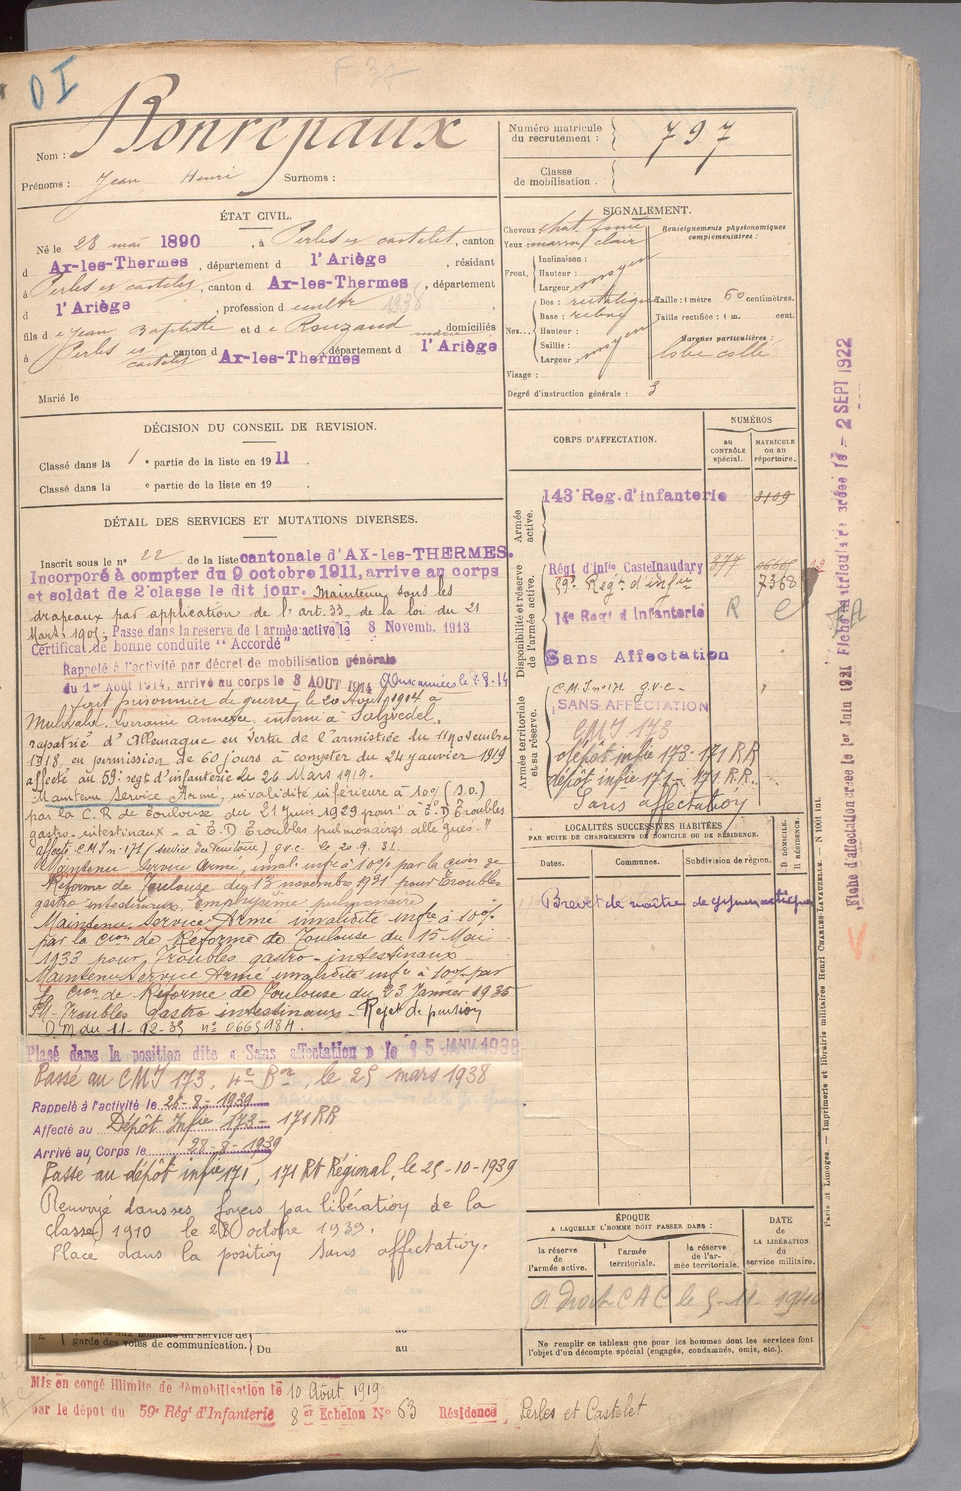 O I
F 3A
Nom : Bonrepaux
Prénoms : Jean Henri Surnoms :
Numéro matricule du recrutement : 797
Classe de mobilisation .
ÉTAT CIVIL.
Né le 28 mai 1890 , à Perles et castelet, canton
d Ax-les-Thermes , département d l'Ariège , résidant
à Perles et castelet, canton d Ax-les-Thermes , département
d l'Ariège , profession de cultr 1938 ,
fils de Jean Baptiste et de Rouzaud marie domiciliés
à Perles et castelet canton d Ax-les-Thermes , département d l'Ariège
Marié le
SIGNALEMENT.
Cheveux chat. foncé
Yeux marron clair
Front. Inclinaison :
Hauteur : moyen
Largeur :
Nez... Dos : rectiligne
Base : relevé
Hauteur :
Saillie : moyen
Largeur :
Visage :
Degré d'instruction générale : 3
Renseignements physionomiques complémentaires :
Taille : 1 mètre 60 centimètres.
Taille rectifiée : 1 m. cent.
Marques particulières :
lobe collé
DÉCISION DU CONSEIL DE REVISION.
Classé dans la 1e partie de la liste en 1911 .
Classé dans la e partie de la liste en 19 .
DÉTAIL DES SERVICES ET MUTATIONS DIVERSES.
Inscrit sous le n° 22 de la liste cantonale d'AX-les-THERMES.
Incorporé à compter du 9 octobre 1911, arrive au corps
et soldat de 2e classe le dit jour. Maintenu sous les
drapeaux par application de l'art. 33, de la loi du 21
Mars 1905, Passe dans la reserve de l'armée active le 8 Novemb. 1913
Certificat de bonne conduite "Accordé"
Rappelé à l'activité par décret de mobilisation générale
du 1er Août 1914, arrivé au corps le 3 AOUT 1914 Aux armées le 8-8-14
fait prisonnier de guerre, le 20 Août 1914 à
Lorraine annexée, interné à Salzvedel,
rapatrié d'Allemagne en vertu de l'armistice du 11 novembre
1918, en permission de 60 jours à compter du 24 janvier 1919
affecté au 59e regt d'infanterie le 26 Mars 1919.
Maintenu Service Armé, invalidité inférieure à 10% (S.D.)
par la C. R de Toulouse du 21 juin 1929 pour "à E.D Troubles
gastro-intestinaux - à E.D Troubles pulmonaires allégués."
Affect. C.M.I n° 171 (service de Toulouse) g.v.c. le 20.9.31.
Maintenu Service Armé, inval. infre à 10% par la Cion de
Réforme de Toulouse du 13 novembre 1931 pour Troubles
gastro intestinaux, emphysème pulmonaire
Maintenu Service Armé invalidité infre à 10%
par la Cion de Réforme de Toulouse du 15 Mai
1933 pour Troubles gastro-intestinaux
Maintenu Service Armé invalidité infre à 10% par
la Cion de Réforme de Toulouse du 23 Janvier 1935
Pr. Troubles gastro intestinaux - Rejet de pension
D.M du 11-02-35 n° 0665984.
Plasé dans la position dite « Sans affectation » le 15 JANV 1938
Passé au CMI 173, 4e Bon, le 25 mars 1938
Rappelé à l'activité le 26-8-1939
Affecté au Dépôt Infie 173 - 171 RR
Arrivé au Corps le 28-8-1939
Passé au dépôt infie 171, 171 Rt Régional, le 25-10-1939
Renvoyé dans ses foyers par libération de la
classe 1910 le 28 octobre 1939.
Placé dans la position sans affectation.
garde des voies de communication. Du au
au
CORPS D'AFFECTATION.
NUMÉROS
au CONTRÔLE spécial.
MATRICULE ou au répertoire.
Armée active.
143e Reg. d'infanterie 8109
Disponibilité et réserve de l'armée active.
Régt d'infie Castelnaudary 877
59e Regt d'infie 7368
14e Regt d'infanterie R
Sans Affectation
Armée territoriale et sa réserve.
C.M.I n° 171 g.v.c.
SANS AFFECTATION
CMI 173
dépôt infie 173-171 RR
dépôt infie 171-171 R.R.
Sans affectation
LOCALITÉS SUCCESSIVES HABITÉES
PAR SUITE DE CHANGEMENTS DE DOMICILE OU DE RÉSIDENCE.
D DOMICILE.
R RÉSIDENCE.
Dates. Communes. Subdivision de région.
Brevet de maître de gymnastique
ÉPOQUE
A LAQUELLE L'HOMME DOIT PASSER DANS :
la réserve de l'armée active.
l'armée territoriale.
la réserve de l'armée territoriale.
DATE de LA LIBÉRATION du service militaire.
a droit C A C le 5-11-1940
Ne remplir ce tableau que pour les hommes dont les services font
l'objet d'un décompte spécial (engagés, condamnés, omis, etc.).
Mis en congé illimité de démobilisation le 10 Août 1919
par le dépôt du 59e Régt d'Infanterie 8e Echelon N° 63 Résidence Perles et Castelet
Fiche d'affectation créée le 1er Juin 1921 Fiche matricule créée le - 2 SEPT 1922
V.
Paris et Limoges. — Imprimerie et librairie militaires Henri CHARLES-LAVAUZELLE. — N° 1001 int.